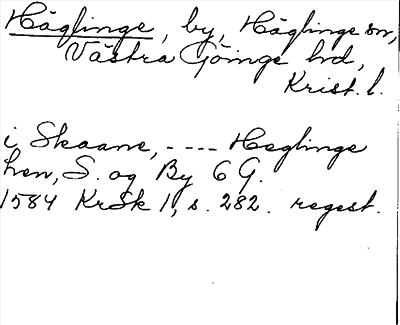 Häglinge, by, Häglinge sn,
Västra Göinge hrd,
Krist. l.
i Skaane, ---- Heglinge
hen, S. og By 6 G.
1584 KrSk 1, s. 282. regest.